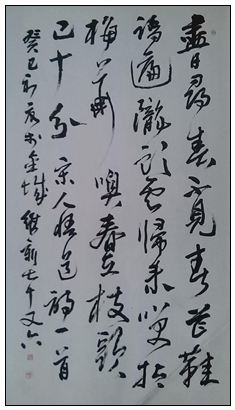 盡日尋春不見春芒鞋
踏遍隴頭雲歸來笑拈
梅花嗅春在枝頭
已十分宋人悟道詩一首
癸巳初夏於金城維新七十又六